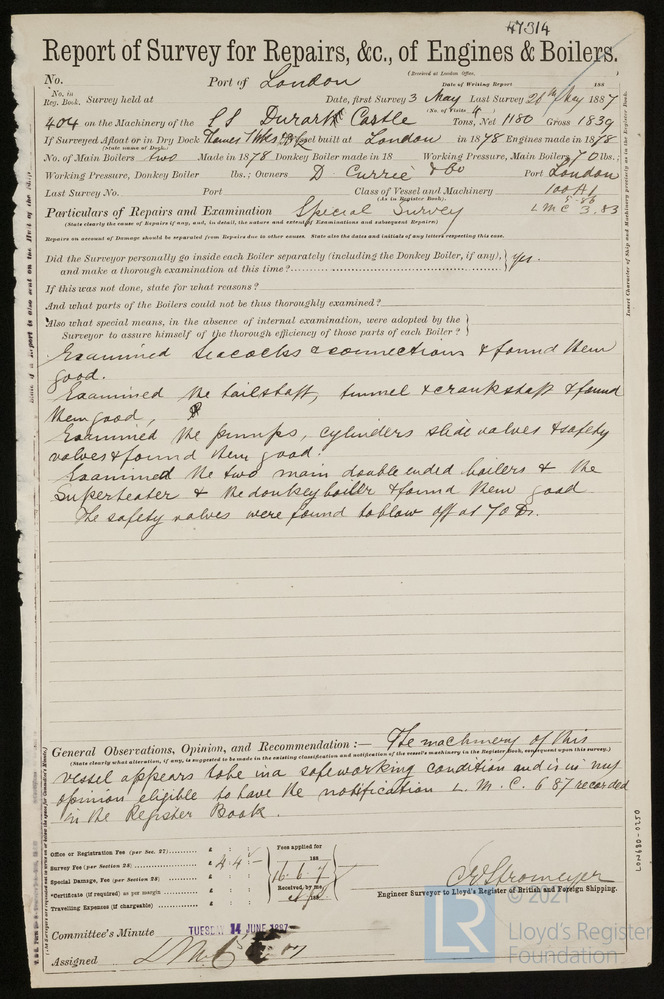 47314
Report of Survey for Repairs, &c., of Engines & Boilers.
(Received at London Office, )
No. Port of London Date of Writing Report 188
No. in Reg. Book. Survey held at Date, first Survey 3 May Last Survey 28th May 1887
(No. of Visits 4 )
404 on the Machinery of the SS Dunart Castle Tons, Net 1180 Gross 1839
If Surveyed Afloat or in Dry Dock Thames Wks Vessel built at London in 1878 Engines made in 1878
(State name of Dock.)
No. of Main Boilers two Made in 1878 Donkey Boiler made in 18 Working Pressure, Main Boilers 70 lbs.;
Working Pressure, Donkey Boiler lbs.; Owners D. Currie & Co Port London
Last Survey No. Port Class of Vessel and Machinery 100A1
(As in Register Book). 5.86
Particulars of Repairs and Examination Special Survey LMC 3.83
(State clearly the cause of Repairs if any, and, in detail, the nature and extent of Examinations and subsequent Repairs)
Repairs on account of Damage should be separated from Repairs due to other causes. State also the dates and initials of any letters respecting this case.
Did the Surveyor personally go inside each Boiler separately (including the Donkey Boiler, if any), and make a thorough examination at this time? yes.
If this was not done, state for what reasons?
And what parts of the Boilers could not be thus thoroughly examined?
Also what special means, in the absence of internal examination, were adopted by the
Surveyor to assure himself of the thorough efficiency of those parts of each Boiler?
Examined seacocks & connections & found them
good.
Examined the tailshaft, tunnel & crankshaft & found
them good,
Examined the pumps, cylinders slide valves & safety
valves & found them good.
Examined the two main double ended boilers & the
Superheater & the donkey boiler & found them good
The safety valves were found to blow off at 70 lbs.
General Observations, Opinion, and Recommendation:— The machinery of this
(State clearly what alteration, if any, is suggested to be made in the existing classification and notification of the vessel's machinery in the Register Book, consequent upon this survey.)
vessel appears to be in a safe working condition and is in my
opinion eligible to have the notification L. M. C. 6 87 recorded
in the Register Book.
Office or Registration Fee (per Sec. 27) £ : :
Survey Fee (per Section 28) £ 4 . 4 . –
Special Damage, Fee (per Section 28) £ : :
Certificate (if required) as per margin £ : :
Travelling Expenses (if chargeable) £ : :
Fees applied for
188
16.6.7
Received by me
C E Stromeyer
Engineer Surveyor to Lloyd's Register of British and Foreign Shipping.
Committee's Minute TUESDAY 14 JUNE 1887
Assigned LMC
Insert Character of Ship and Machinery precisely as in the Register Book.
LON680-0250
© 2021
LR
Lloyd's Register
Foundation